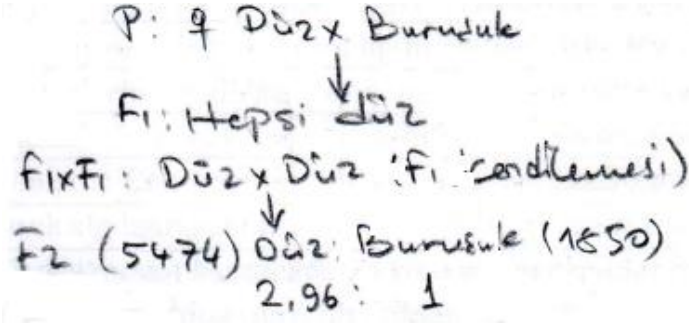 P: ♀ Düz x Buruşuk
↓
F1: Hepsi düz
F1xF1: Düz x Düz (F1 kendilemesi)
↓
F2 (5474) Düz: Buruşuk (1850)
2,96: 1